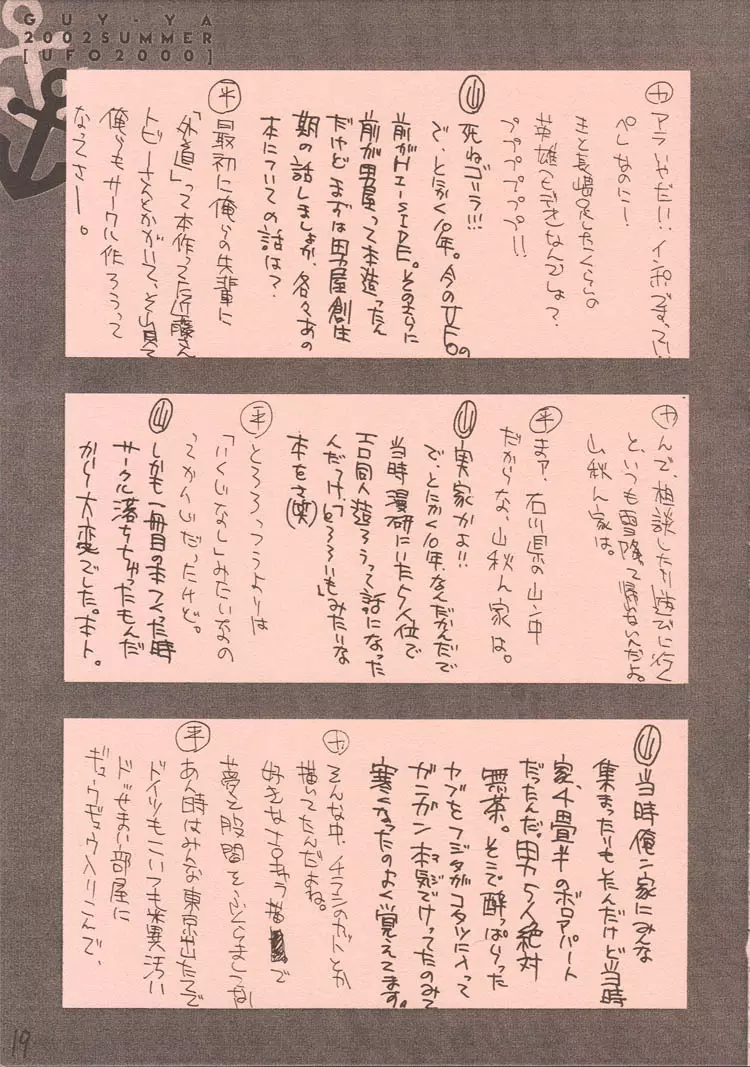 GUY-YA
2002SUMMER
[UFO2000]
アラいやだ!!
英雄
なんでしょ?
プププププププ!!
山
死ねゴリラ!!!
で、とにかく10年。今のUFOの
前がHI-SIDE。そのまえに
前が男屋って本造ったん
だけどまずは男屋創生
期の話しましょか、各々あの
本についての話は?
平
最初に俺らの先輩に
「外道」って本作ってた近藤さん
トビーさんとかがいて、それ見て
俺らもサークル作ろうって
なってさー。
んで、相談したり遊びに行く
と、いつも雪降って帰れないんだよ
山秋ん家は。
平
まァ、石川県の山ン中
だからな、山秋ん家は。
山
実家かよ!!
で、とにかく10年、なんだかんだで
当時漫研にいた5人位で
エロ同人造ろうって話になった
んだっけ、「とろろいも」みたいな
本をさ(笑)
平
とろろっつうよりは
「いくじなし」みたいなの
ってかんじだったけど。
山
しかも一冊目の本つくった時
サークル落ちちゃったもんだ
から大変でした。ホント。
山
当時俺ン家にみんな
集まったりもしたんだけど当時
家、4畳半のボロアパート
だったんだ。男5人絶対
無茶。そこで酔っぱらった
ヤブをフジタがコタツに入って
ガンガン本気でけってたのみて
マジ
寒くなったのよく覚えてます。
そんな中、チラシのガイとか
描いてたんだよね。
好きな
夢と股間を
平
あん時はみんな東京出たてで
ドイツもこいつも
ドせまい部屋に
ギュウギュウ入りこんで、
19